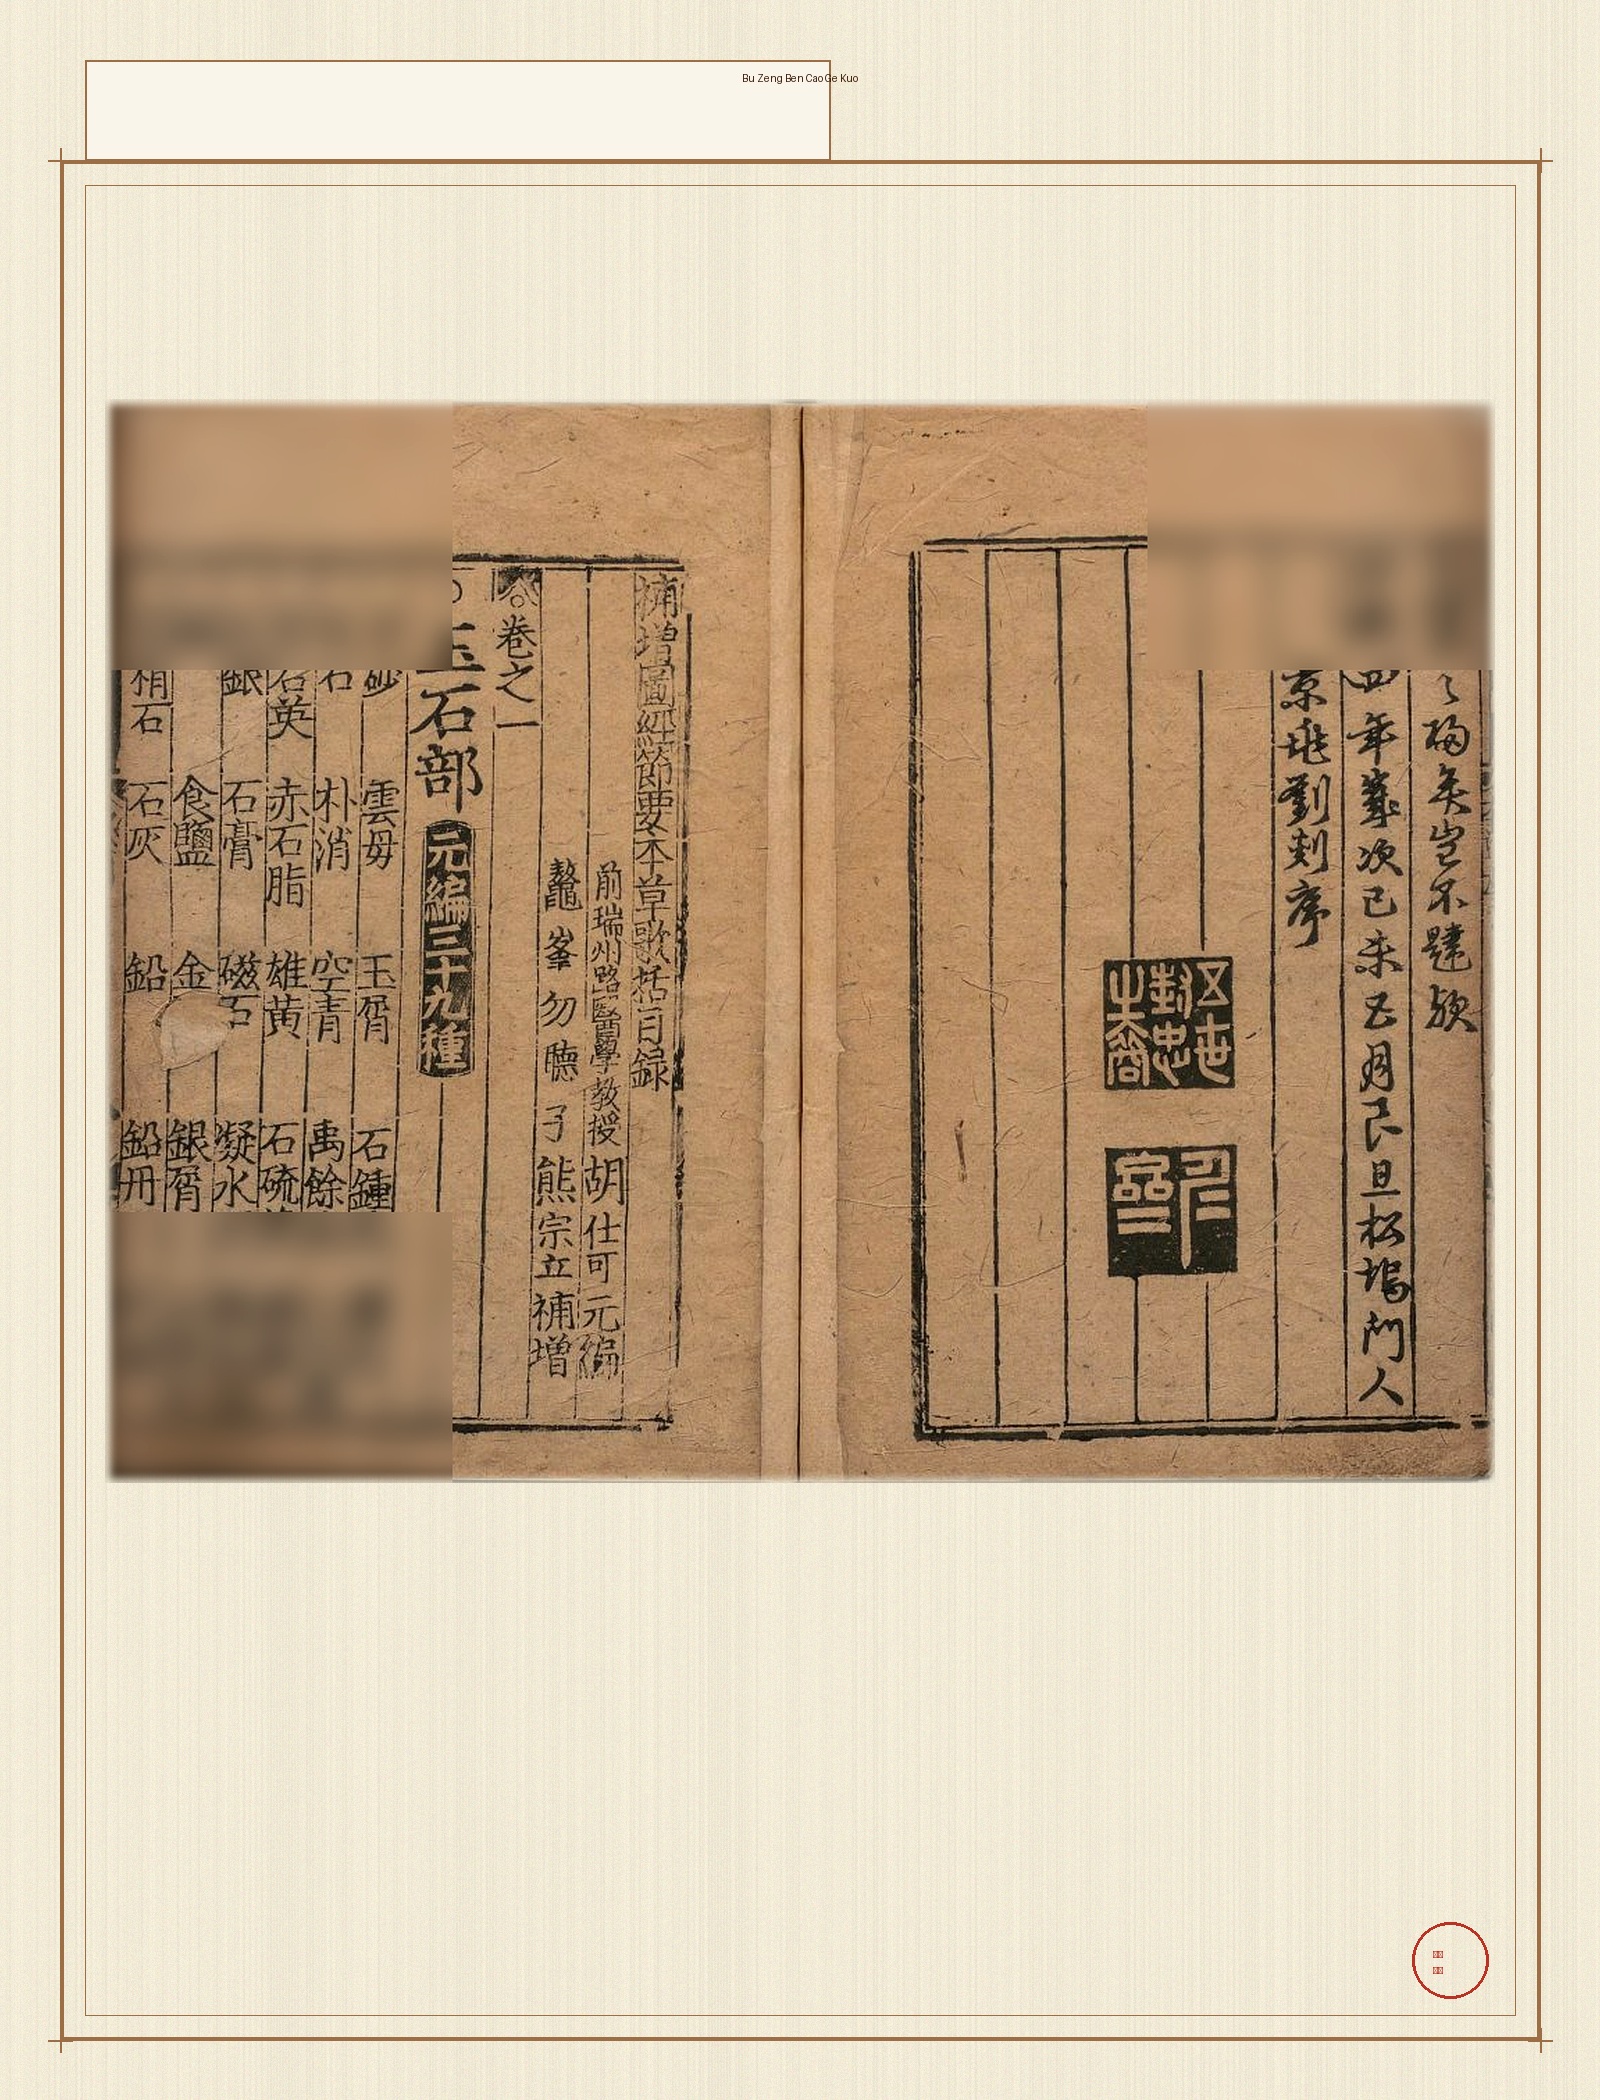 Bu Zeng Ben Cao Ge Kuo
福矣豈不韙歟
年歲次己未正月良旦松塢門人
京兆劉剡序
五世
封忠
之裔
補增圖經節要本草歌括目錄
前瑞州路醫學教授胡仕可元編
鰲峯勿聽子熊宗立補增
卷之一
玉石部 元編三十九種
砂 雲母 玉屑 石鍾
石 朴消 空青 禹餘
石英 赤石脂 雄黃 石硫
銀 石膏 磁石 凝水
食鹽 金 銀屑
石 石灰 鉛 鉛丹